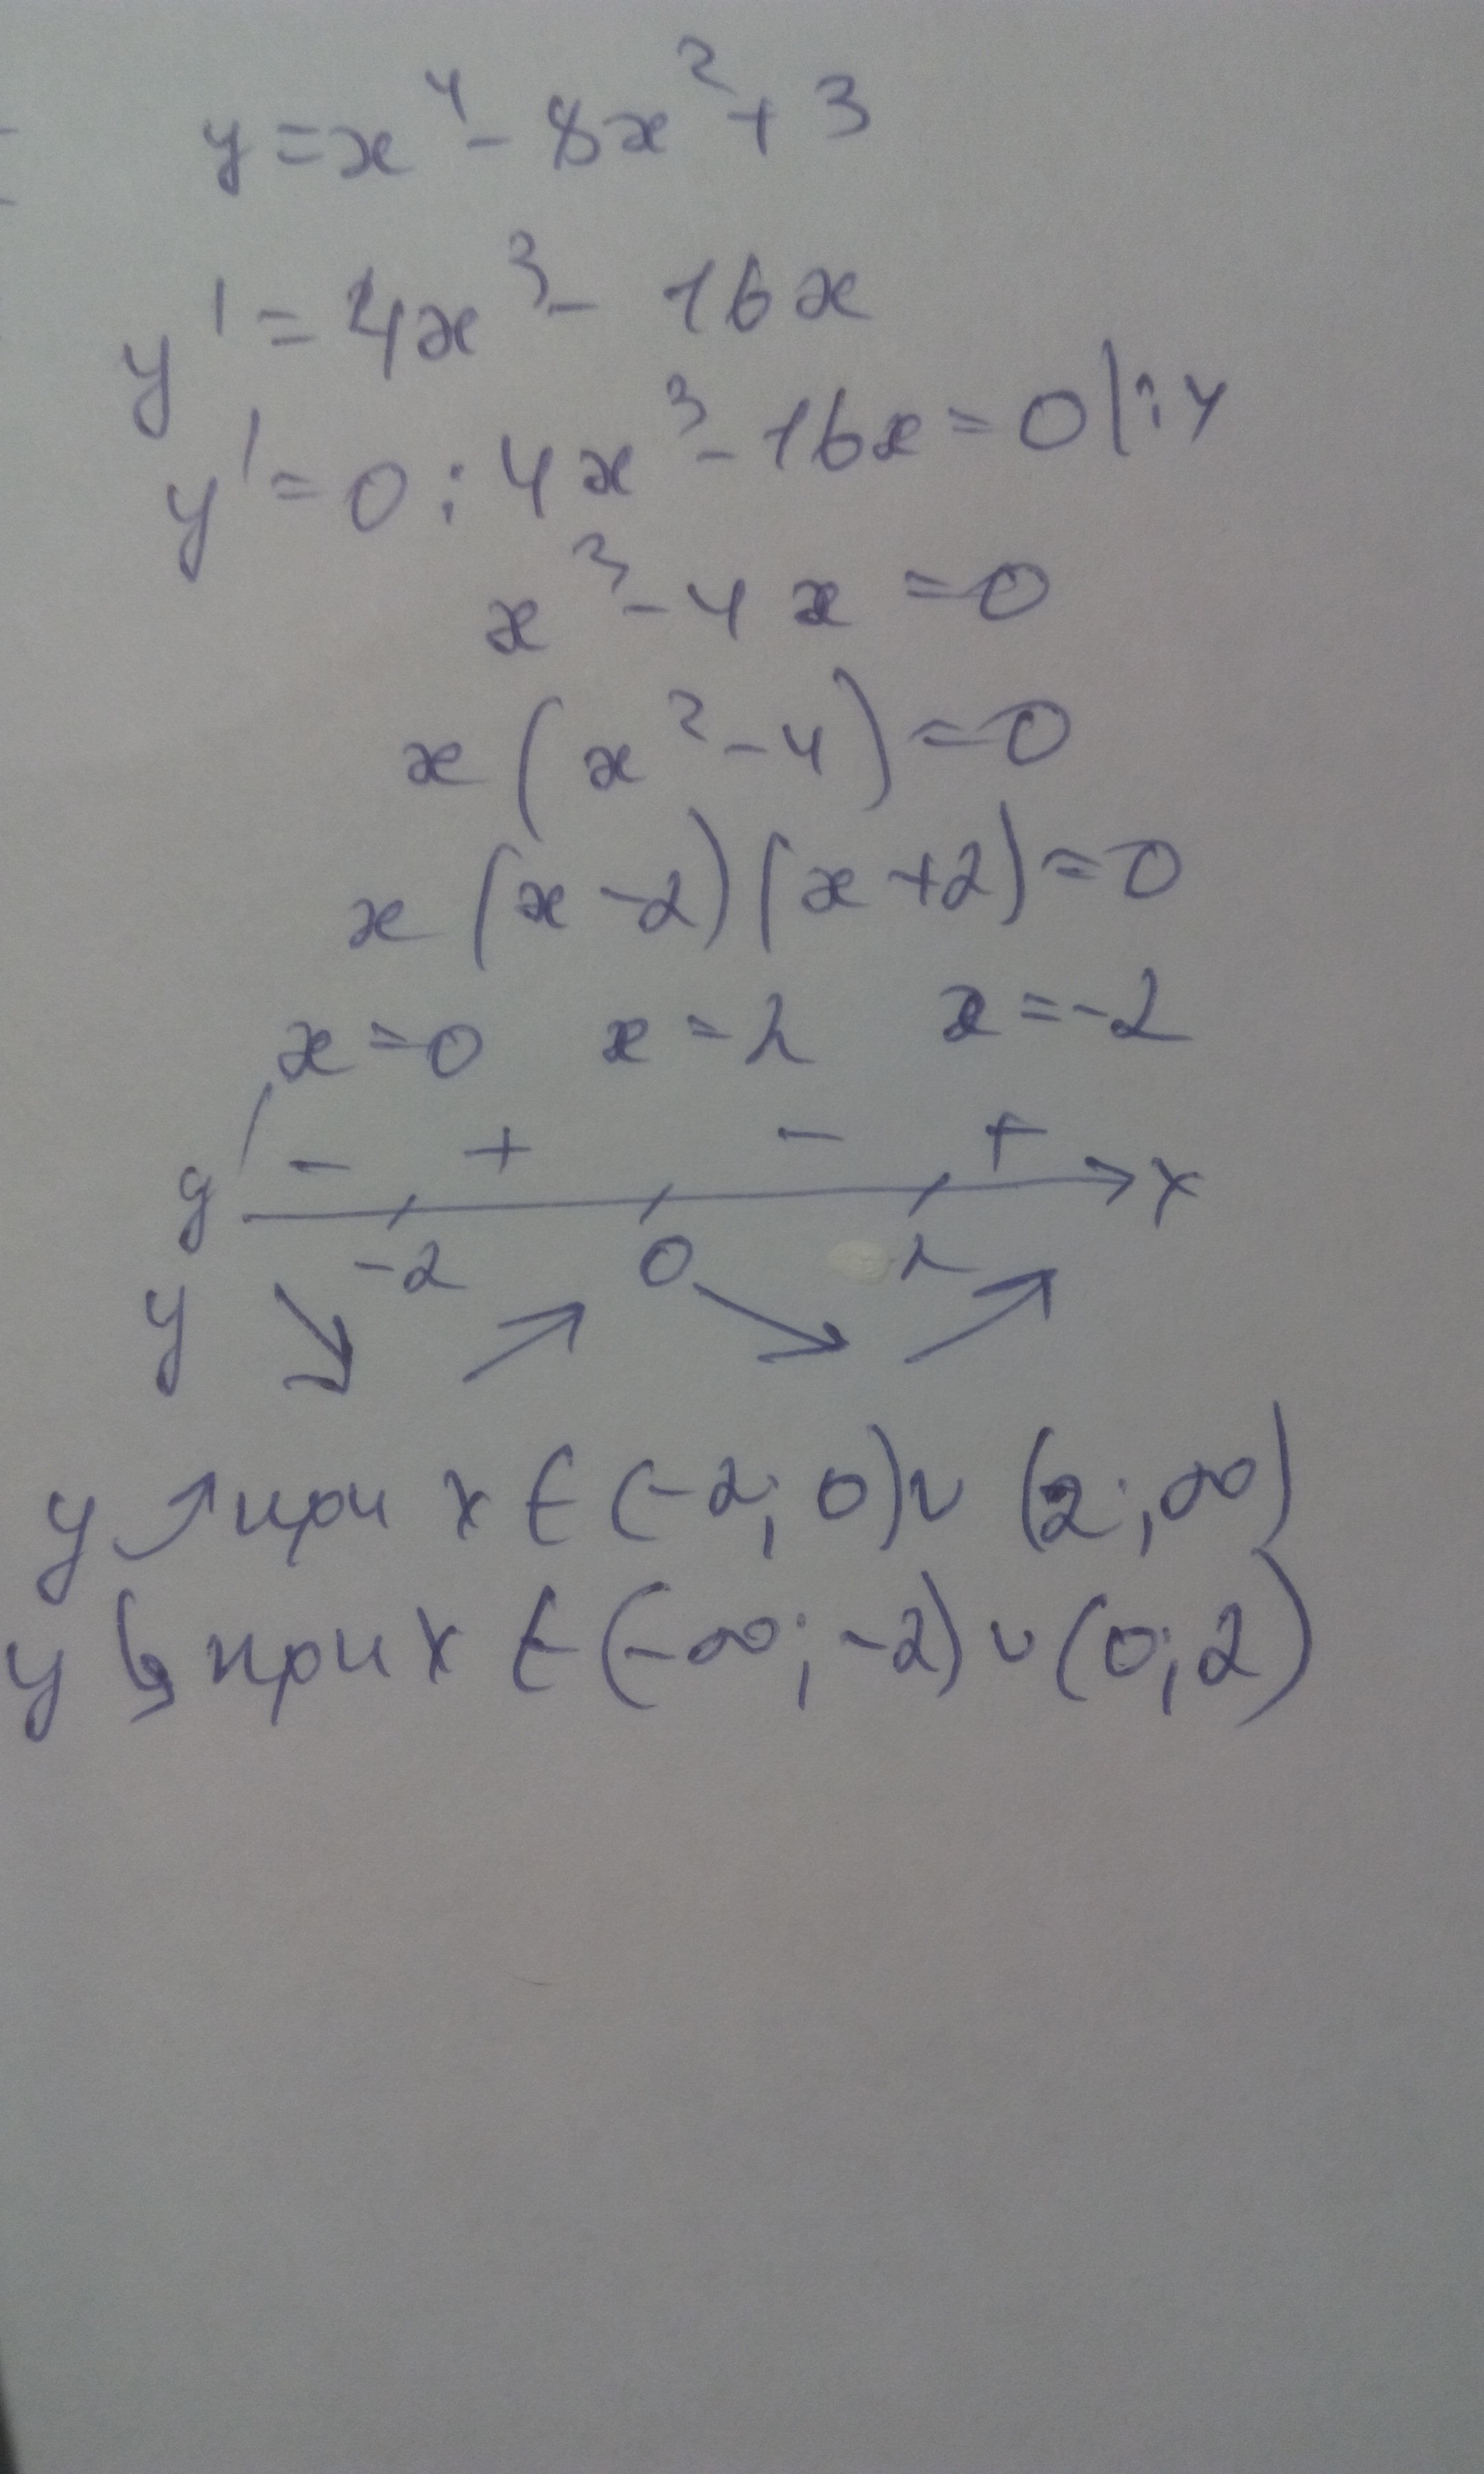 y = x⁴ - 8x² + 3
y' = 4x³ - 16x
y' = 0 : 4x³ - 16x = 0 | : 4
x³ - 4x = 0
x (x² - 4) = 0
x (x - 2) (x + 2) = 0
x = 0 x = 2 x = -2
y' - + - + x
-2 0 2
y ↘ ↗ ↘ ↗
y ↗ при x ∈ (-2; 0) ∪ (2; ∞)
y ↘ при x ∈ (-∞; -2) ∪ (0; 2)